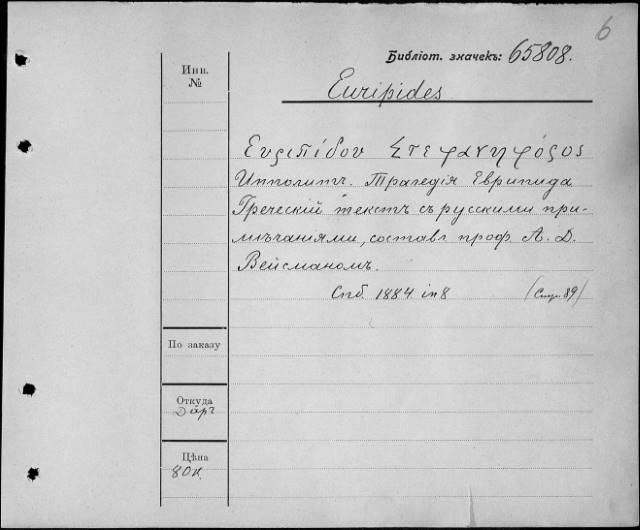 6
Библіот. значекъ: 65808.
Инв.
№
Euripides
Εὐριπίδου Στεφανηφόρος
Ипполитъ. Трагедія Еврипида
Греческій текстъ съ русскими при-
мѣчаніями, состав. проф. А. Д.
Вейсманомъ.
Спб. 1884 in 8 (Стр. 89)
По заказу
Откуда
Даръ
Цѣна
80к.